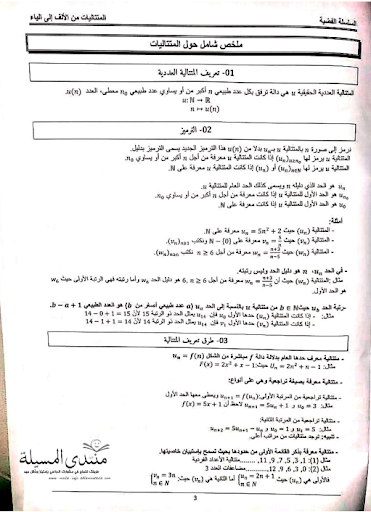 السلسلة الفضية
المتتاليات من الألف إلى الياء
ملخص شامل حول المتتاليات
01- تعريف المتتالية العددية
المتتالية العددية الحقيقية u هي دالة ترفق بكل عدد طبيعي n أكبر من أو يساوي عدد طبيعي n₀ معطى، العدد u(n).
u: ℕ → ℝ
n ↦ u(n)
02- الترميز
نرمز إلى صورة n بالمتتالية u بـ uₙ بدلا من u(n) هذا الترميز الجديد يسمى الترميز بدليل.
المتتالية u يرمز لها (uₙ)ₙ≥ₙ₀ إذا كانت المتتالية u معرفة من أجل n أكبر من أو يساوي n₀.
المتتالية u يرمز لها (uₙ)ₙ∈ℕ أو (uₙ) إذا كانت المتتالية u معرفة على ℕ.
uₙ هو الحد الذي دليله n ويسمى كذلك الحد العام للمتتالية u.
uₙ₀ هو الحد الأول للمتتالية u إذا كانت معرفة من أجل n أكبر من أو يساوي n₀.
u₀ هو الحد الأول للمتتالية u إذا كانت معرفة على ℕ.
أمثلة:
- المتتالية (uₙ) حيث uₙ = 5n² + 2 معرفة على ℕ.
- المتتالية (vₙ) حيث vₙ = 5/n معرفة على ℕ − {0} ونكتب (vₙ)ₙ≥₁.
- المتتالية (wₙ) حيث wₙ = (n+2)/(n−5) معرفة من أجل n ≥ 6 ونكتب (wₙ)ₙ≥₆.
- في الحد uₙ، n هو دليل الحد وليس رتبته.
مثال: المتتالية (wₙ) حيث أن wₙ = (n+2)/(n−5)، n ≥ 6، 6 هو دليل الحد w₆ وأما رتبته فهي الرتبة الأولى حيث w₆
هو الحد الأول.
-رتبة الحد u_b حيث b ∈ ℕ من متتالية u بالنسبة إلى الحد uₐ (a عدد طبيعي أصغر من b) هو العدد الطبيعي b − a + 1.
مثال: - إذا كانت المتتالية (uₙ) حدها الأول u₀ فإن u₁₄ يمثل الحد ذو الرتبة 15 لأن 15 = 1 + 0 − 14
- إذا كانت المتتالية (uₙ) حدها الأول u₁ فإن u₁₄ يمثل الحد ذو الرتبة 14 لأن 14 = 1 + 1 − 14
03- طرق تعريف المتتالية
- متتالية معرف حدها العام بدلالة دالة f مباشرة من الشكل uₙ = f(n)
مثال: Uₙ = 2n² + n − 1 حيث: F(x) = 2x² + x − 1
- متتالية معرفة بصيغة تراجعية وهي على أنواع:
- متتالية تراجعية من المرتبة الأولى: uₙ₊₁ = f(uₙ) ويعطى معها الحد الأول
مثال: u₀ = 3 و uₙ₊₁ = 5uₙ + 1 لاحظ أن f(x) = 5x + 1
- متتالية تراجعية من المرتبة الثانية:
مثال: u₁ = 5 و u₀ = 1 و uₙ₊₂ = 5uₙ₊₁ − uₙ
- تنبيه: توجد متتاليات من مراتب أعلى.
- متتالية معرفة بذكر القائمة الأولى من حدودها بحيث تسمح بإستبيان خاصيتها.
مثال: (1): 1, 3, 5, 7, 9, 11, ....... متتالية الأعداد الفردية
مثال (2): 0, 3, 6, 9, 12, ........ مضاعفات العدد 3
فالأولى هي {uₙ = 2n + 1, n ∈ ℕ حيث: أما الثانية فهي {vₙ = 3n, n ∈ ℕ حيث:
منتدى المسيلة
3